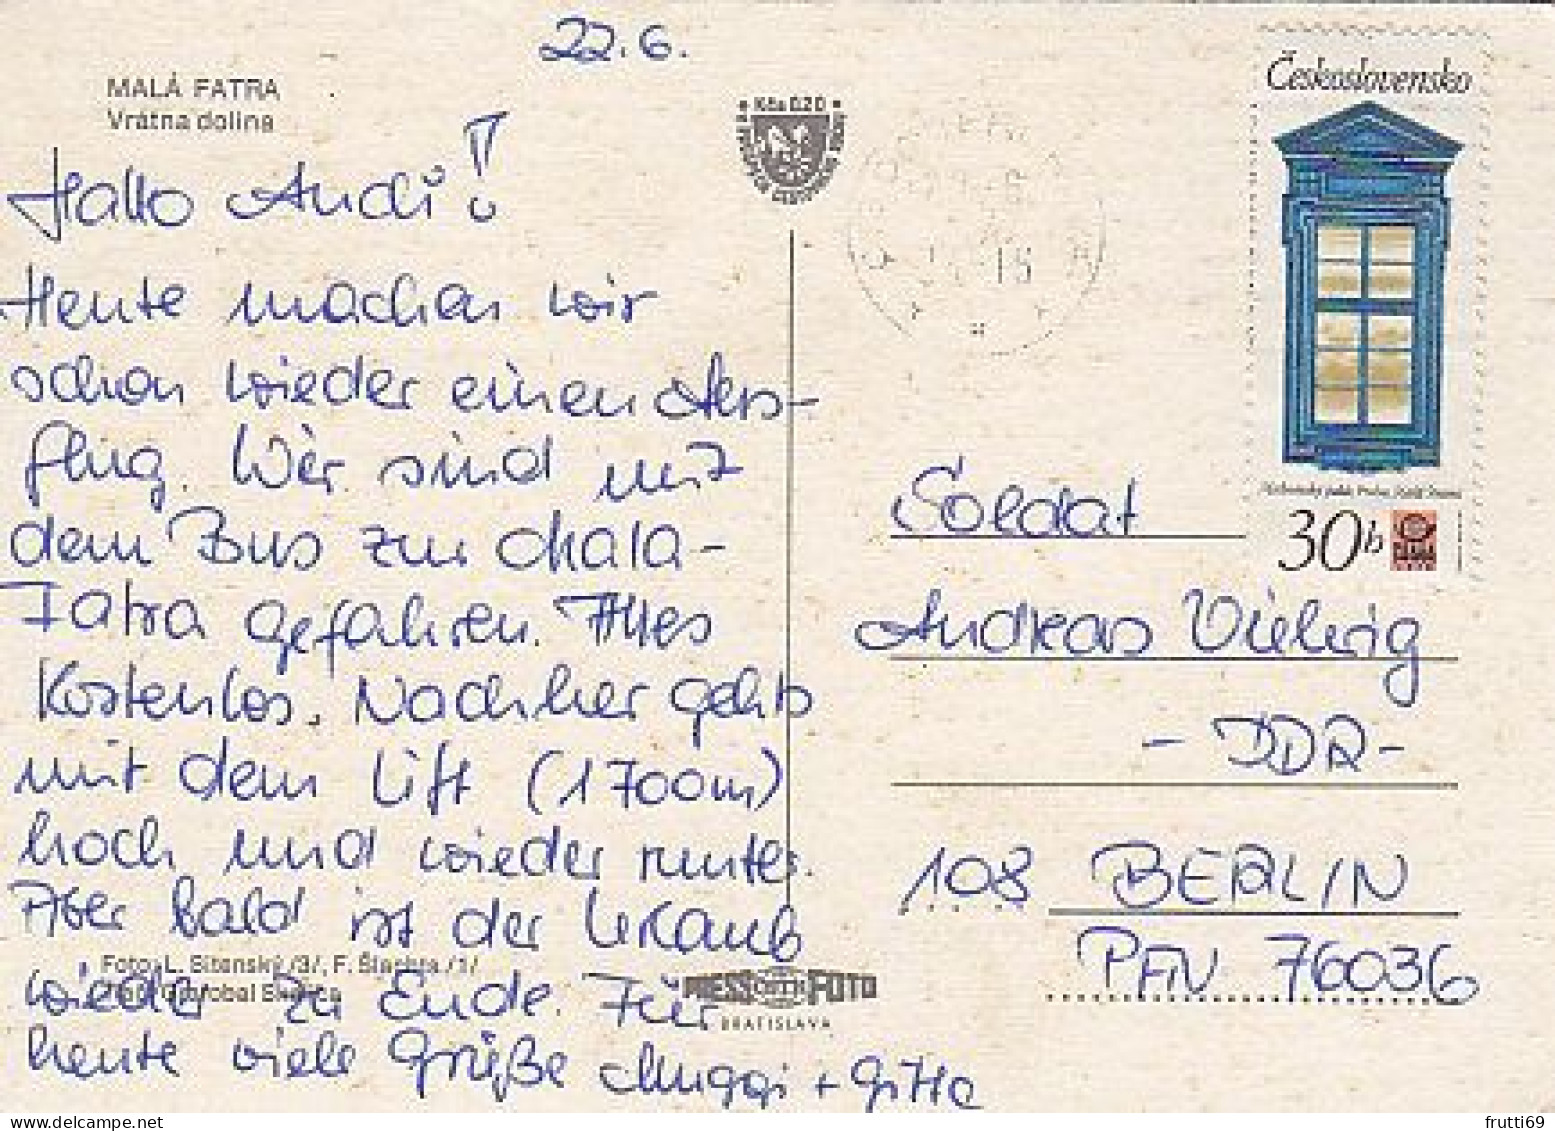 22.6.
MALÁ FATRA
Vrátna dolina
Kčs 0.20
Československo
30h
Hallo Andi!
Heute machen wir
schon wieder einen Aus-
flug. Wir sind mit
dem Bus zur Mala-
Fatra gefahren. Alles
kostenlos. Nachher gehts
mit dem Lift (1700m)
hoch und wieder runter.
Aber bald ist der Urlaub
wieder zu Ende. Für
heute viele Grüße Muggi + Gitta
Soldat
Andreas Viehrig
- DDR -
108 BERLIN
PFN 76036
Foto: L. Sitenský /3/, F. Šlachta /1/
PRESSFOTO
BRATISLAVA
frutti69